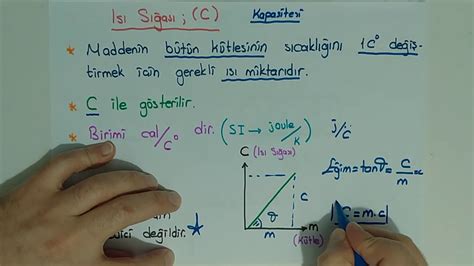 Isı Sığası ; (C) Kapasitesi
* Maddenin bütün kütlesinin sıcaklığını 1C° değiş-
tirmek için gerekli ısı miktarıdır.
* C ile gösterilir.
* Birimi cal/C° dir. (SI → joule/K) j/c
C (Isı Sığası)
Eğim = tanθ = C/m =
C
θ
m
m (kütle)
C = m.c
değildir. *